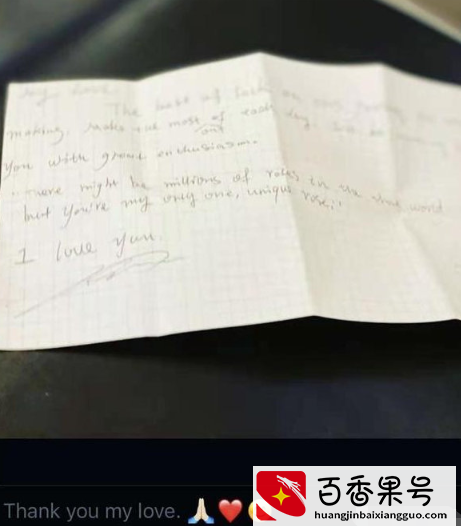 My love
The best of luck on
making. Makes the most of each day.
out
you with great enthusiasm.
"There might be millions of roses in the
but you're my only one, unique rose."
I love you.
Thank you my love. 🙏🏻❤️
百香果号
huangjinbaixiangguo.com